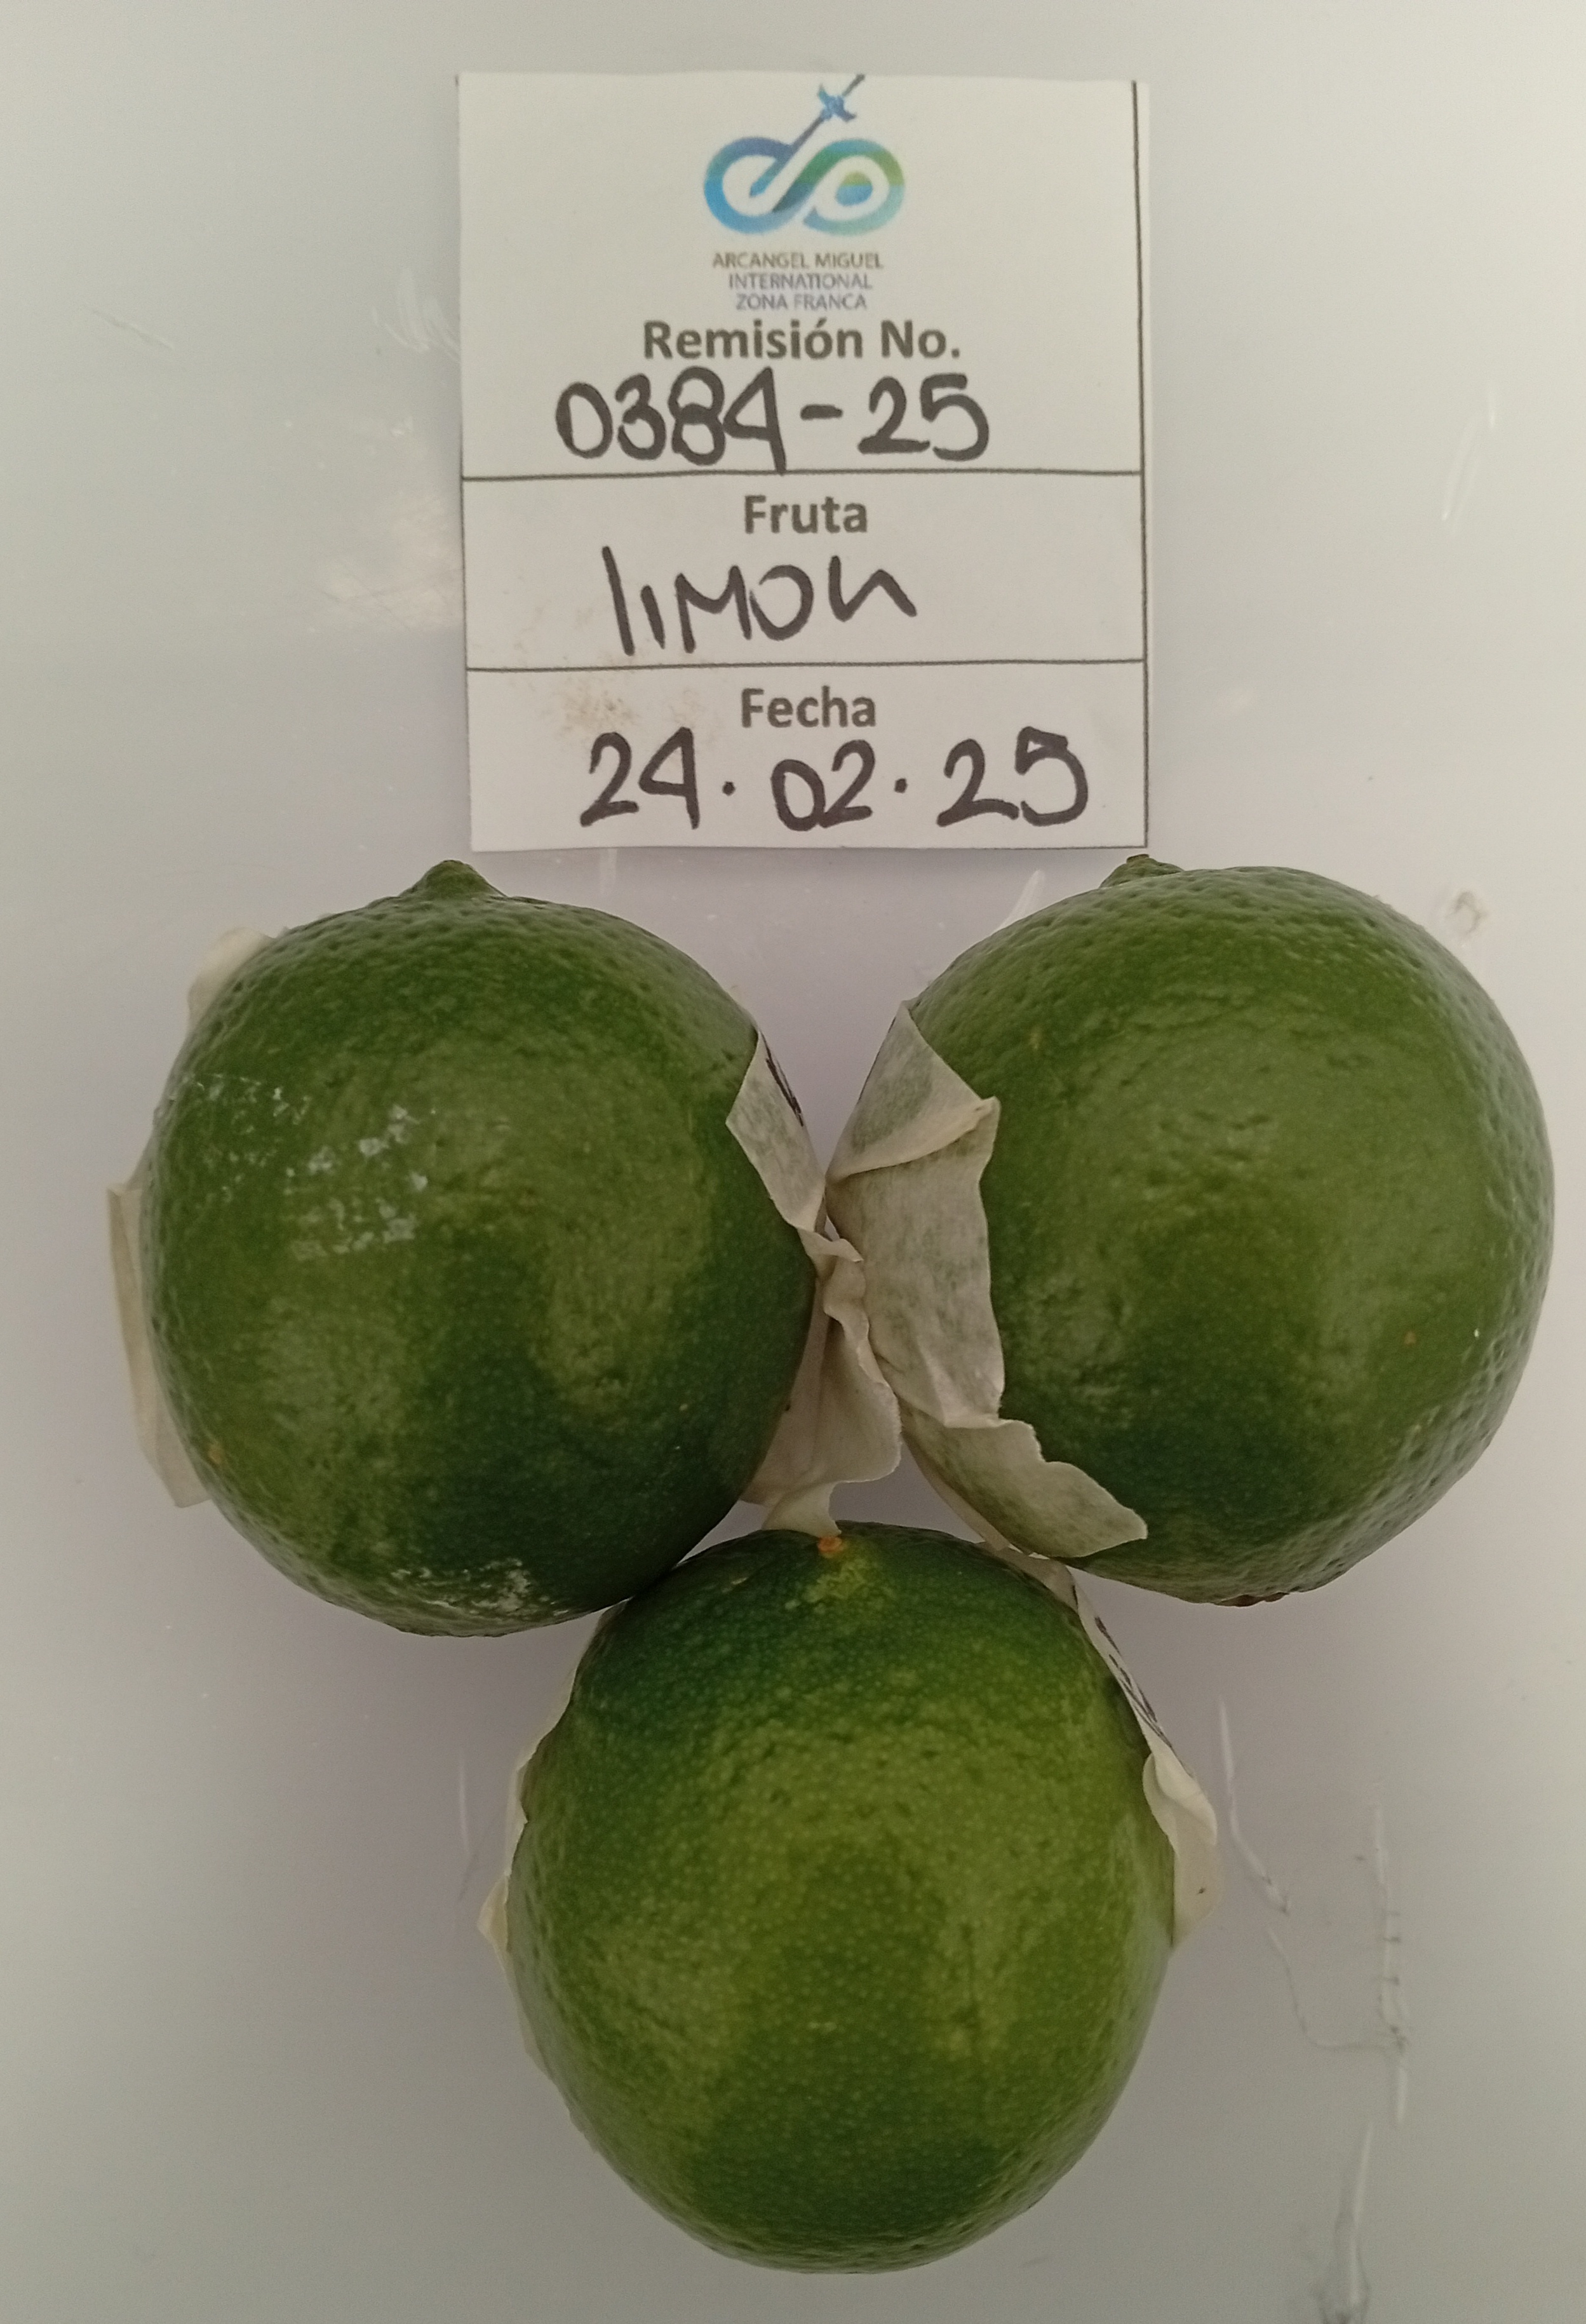 ARCANGEL MIGUEL
INTERNATIONAL
ZONA FRANCA
Remisión No.
0384-25
Fruta
limon
Fecha
24.02.25